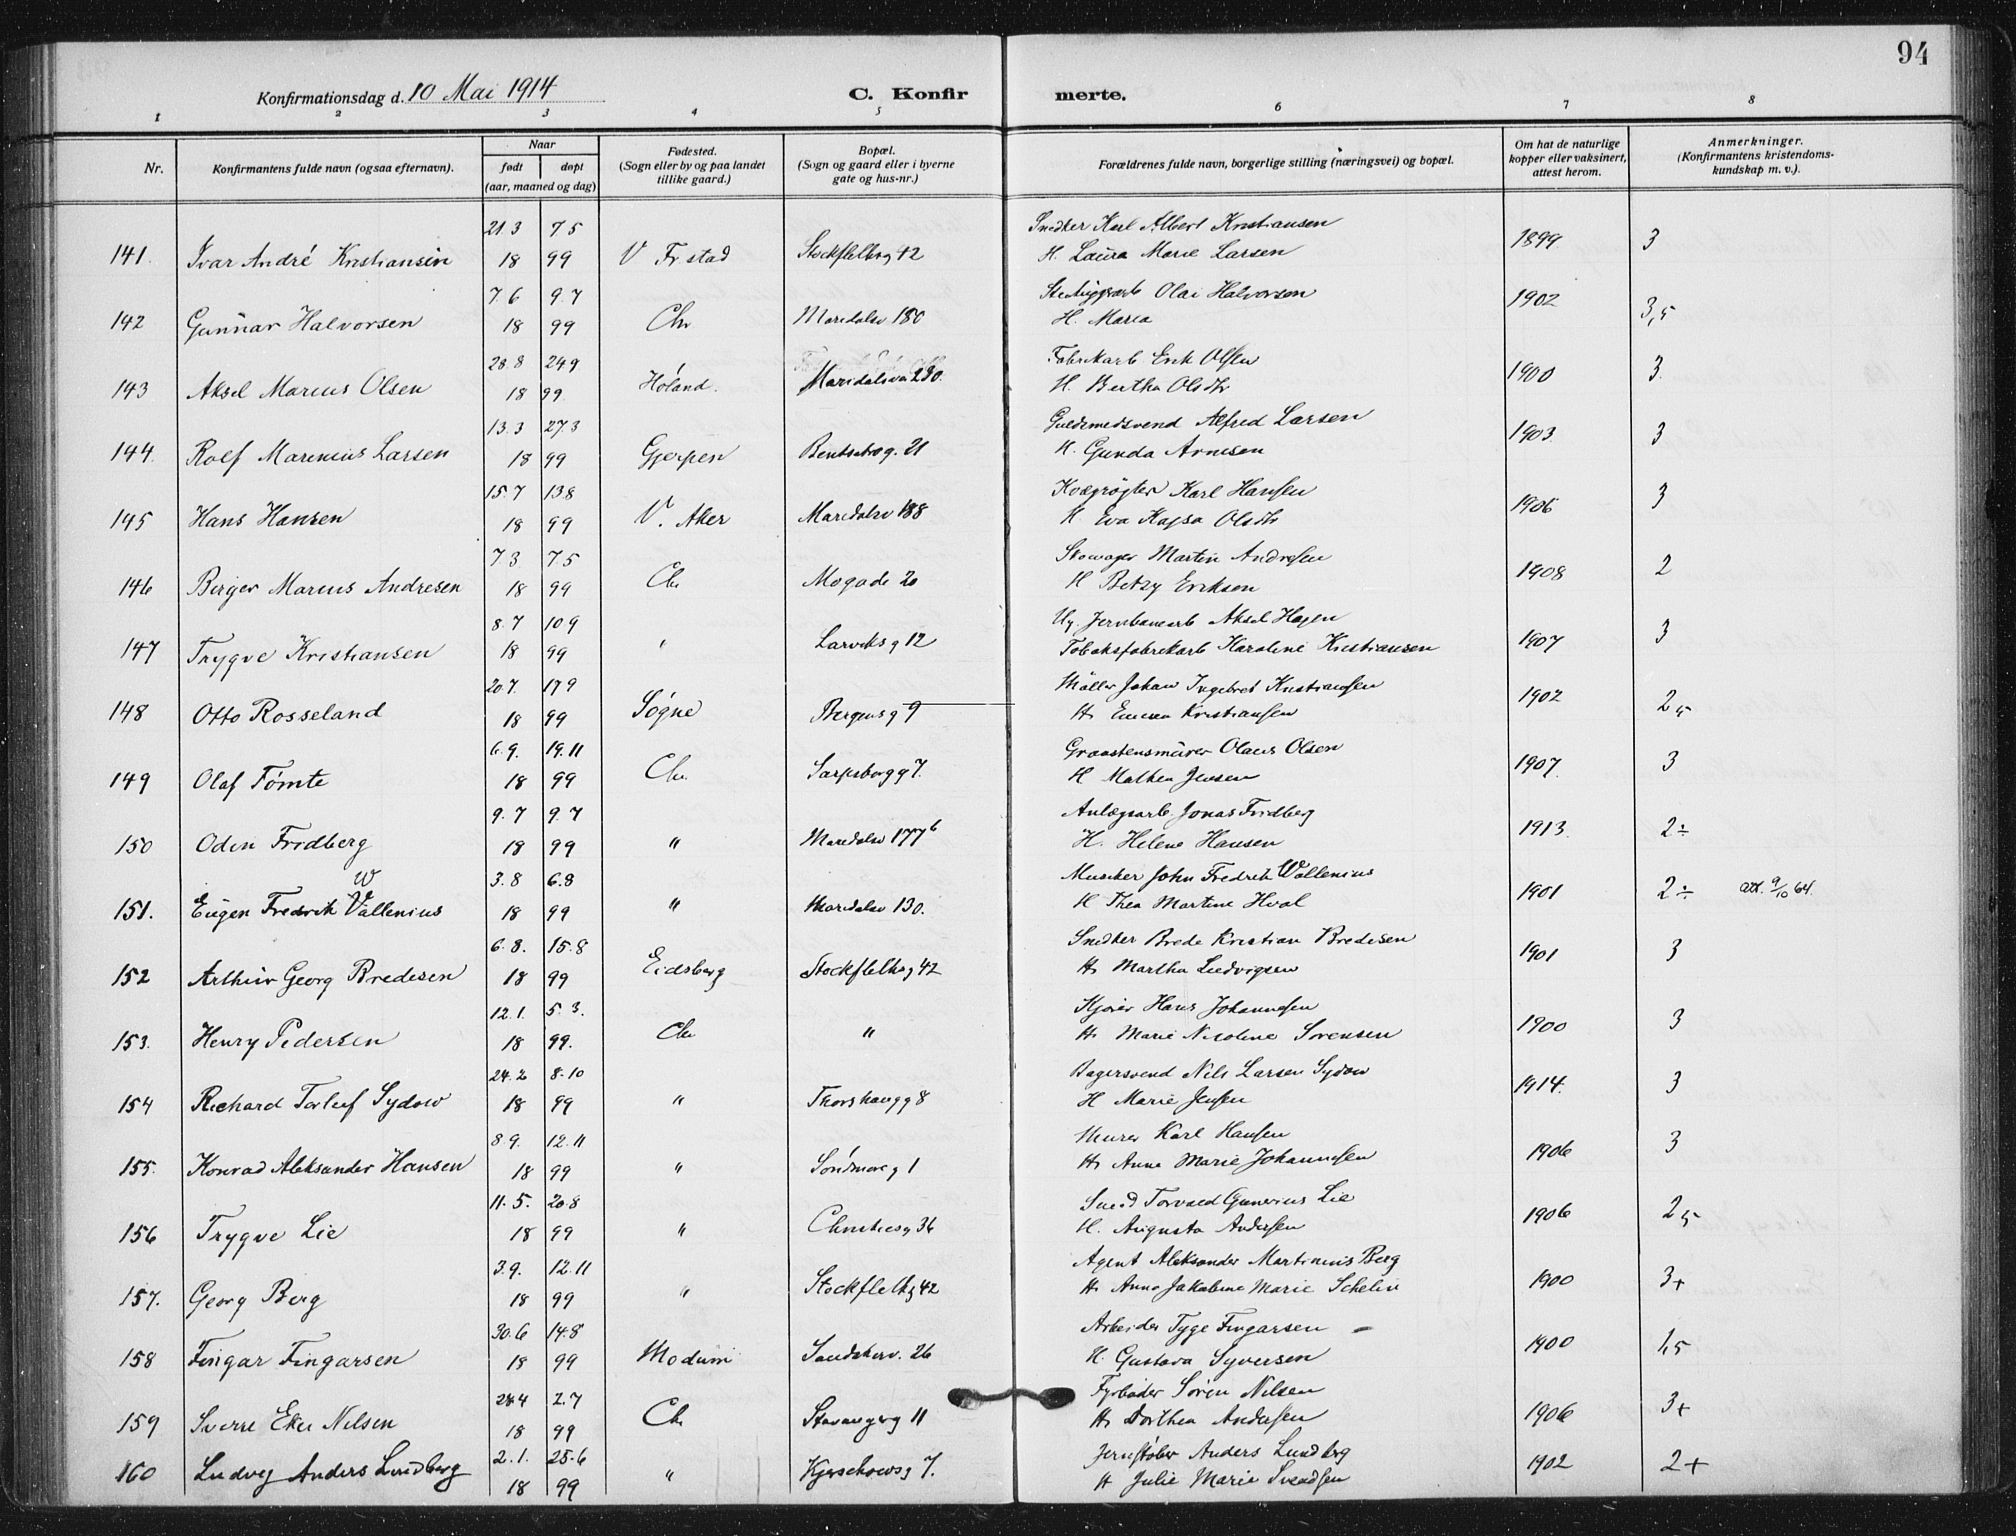 94
Konfirmationsdag d. 10 Mai 1914
C. Konfir merte.
1 2 3 4 5 6 7 8
Nr. Konfirmantens fulde navn (ogsaa efternavn). Naar født døpt (aar, maaned og dag) Fødested. (Sogn eller by og paa landet tillike gaard.) Bopæl. (Sogn og gaard eller i byerne gate og hus-nr.) Forældrenes fulde navn, borgerlige stilling (næringsvei) og bopæl. Om hat de naturlige kopper eller vaksinert, attest herom. Anmerkninger. (Konfirmantens kristendoms-kundskap m. v.).
21.3 7.5 Snedker Karl Albert Kristiansen
141. Ivar André Kristiansen 18 99 V Fr.stad Stockflethsg 42 H. Laura Marie Larsen 1899 3
7.6 9.7 Olai Halvorsen
142 Gunnar Halvorsen 18 99 Chr Maridalsv 180 H. Maria 1902 3,5
28.8 24.9 Fabrikarb Erik Olsen
143 Aksel Marius Olsen 18 99. Høland. Maridalsvn 230. H. Bertha Olsdtr 1900 3.
13.3 27.3 Guldsmedsvend Alfred Larsen
144. Rolf Marenius Larsen 18 99 Gjerpen Bentsebrog. 21 H. Gunda Arnesen 1903. 3
15.7 13.8 Kvægrøgter Karl Hansen
145 Hans Hansen 18 99 V. Aker Maridalsv 188 H. Eva Kajsa Olsdtr 1906 3
7.3 7.5 Skomager Martin Andresen
146 Birger Marius Andresen 18 99 Chr Mogade 20 H Betzy Eriksen 1908 2
8.7 10.9 Ug. Jernbanearb Aksel Hagen
147 Trygve Kristiansen 18 99 " Larviksg 12 Tobaksfabrikarb Karoline Kristiansen 1907 3
20.7. 17.9 Møller Johan Ingebret Kristiansen
148 Otto Rosseland 18 99 Søgne Bergensg 9 H. Emma Kristiansen 1902 2,5
6.9. 19.11 Graastensmurer Olaus Olsen
149 Olaf Tømte 18 99 Chr. Sarpsborgg 7. H Mathea Jensen 1907. 3
9.7 9.7 Anlægsarb. Jonas Fridberg
150 Odin Fridberg 18 99 " Maridalsv 177b H. Helene Hansen 1913. 2÷
W 3.8 6.8 Musiker John Fredrik Wallenius
151. Eugen Fredrik Vallenius 18 99 " Maridalsv 130. H Thea Martine Hval 1901 2÷ att. 9/10 64.
6.8. 15.8 Snedker Brede Kristian Bredesen
152 Arthur Georg Bredesen 18 99 Eidsberg Stockflethsg 42 H. Martha Ludvigsen 1901 3
12.1. 5.3. Kjører Hans Johannesen
153. Henry Pedersen 18 99. Chr " H. Marie Nicoline Sørensen 1900 3
24.2 8.10 Bagersvend Nils Larsen Sydow
154 Richard Torleif Sydow 18 99 " Thorshaugg 8 H Marie Jensen 1914. 3
8.9. 12.11 Murer Karl Hansen
155. Konrad Aleksander Hansen 18 99 " Søndmøreg 1 H. Anna Marie Johannesen 1906 3
11.5. 20.8 Smed Torvald Gunerius Lie
156 Trygve Lie 18 99 " Christiesg 36 H. Augusta Andersen 1906 2,5
3.9. 12.11 Agent Aleksander Martinius Berg
157. Georg Berg 18 99 " Stockflethg 42 H. Anna Jakobine Marie Schelin 1900 3+
30.6 14.8 Arbeider Tyge Fingarsen
158 Fingar Fingarsen 18 99 Modum Sandakerv. 26 H. Gustava Syversen 1900 1,5
28.4 2.7 Fyrbøder Søren Nilsen
159 Sverre Eker Nilsen 18 99 Chr Stavangerg 11 H. Dorthea Andersen 1906 3+
2.1. 25.6 Jernstøber Anders Lundberg
160 Ludvig Anders Lundberg 18 99 " Kjerschowsg 7. H Julie Marie Svendsen 1902 2+